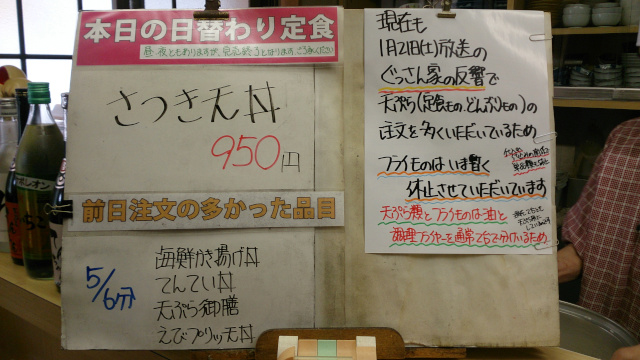 本日の日替わり定食
昼・夜ともありますが、完売終了となります。ごう承ください
さつき天丼
950円
前日注文の多かった品目
5/6分
海鮮かき揚げ丼
てんてい丼
天ぷら御膳
えびプリッ天丼
現在も
1月21日(土)放送の
ぐっさん家の反響で
天ぷら(定食もの、どんぶりもの)の
注文を多くいただいているため
フライものはいま暫く
休止させていただいています
天ぷら類とフライものは油と
調理フライヤーを通常でも分けているため
レオン